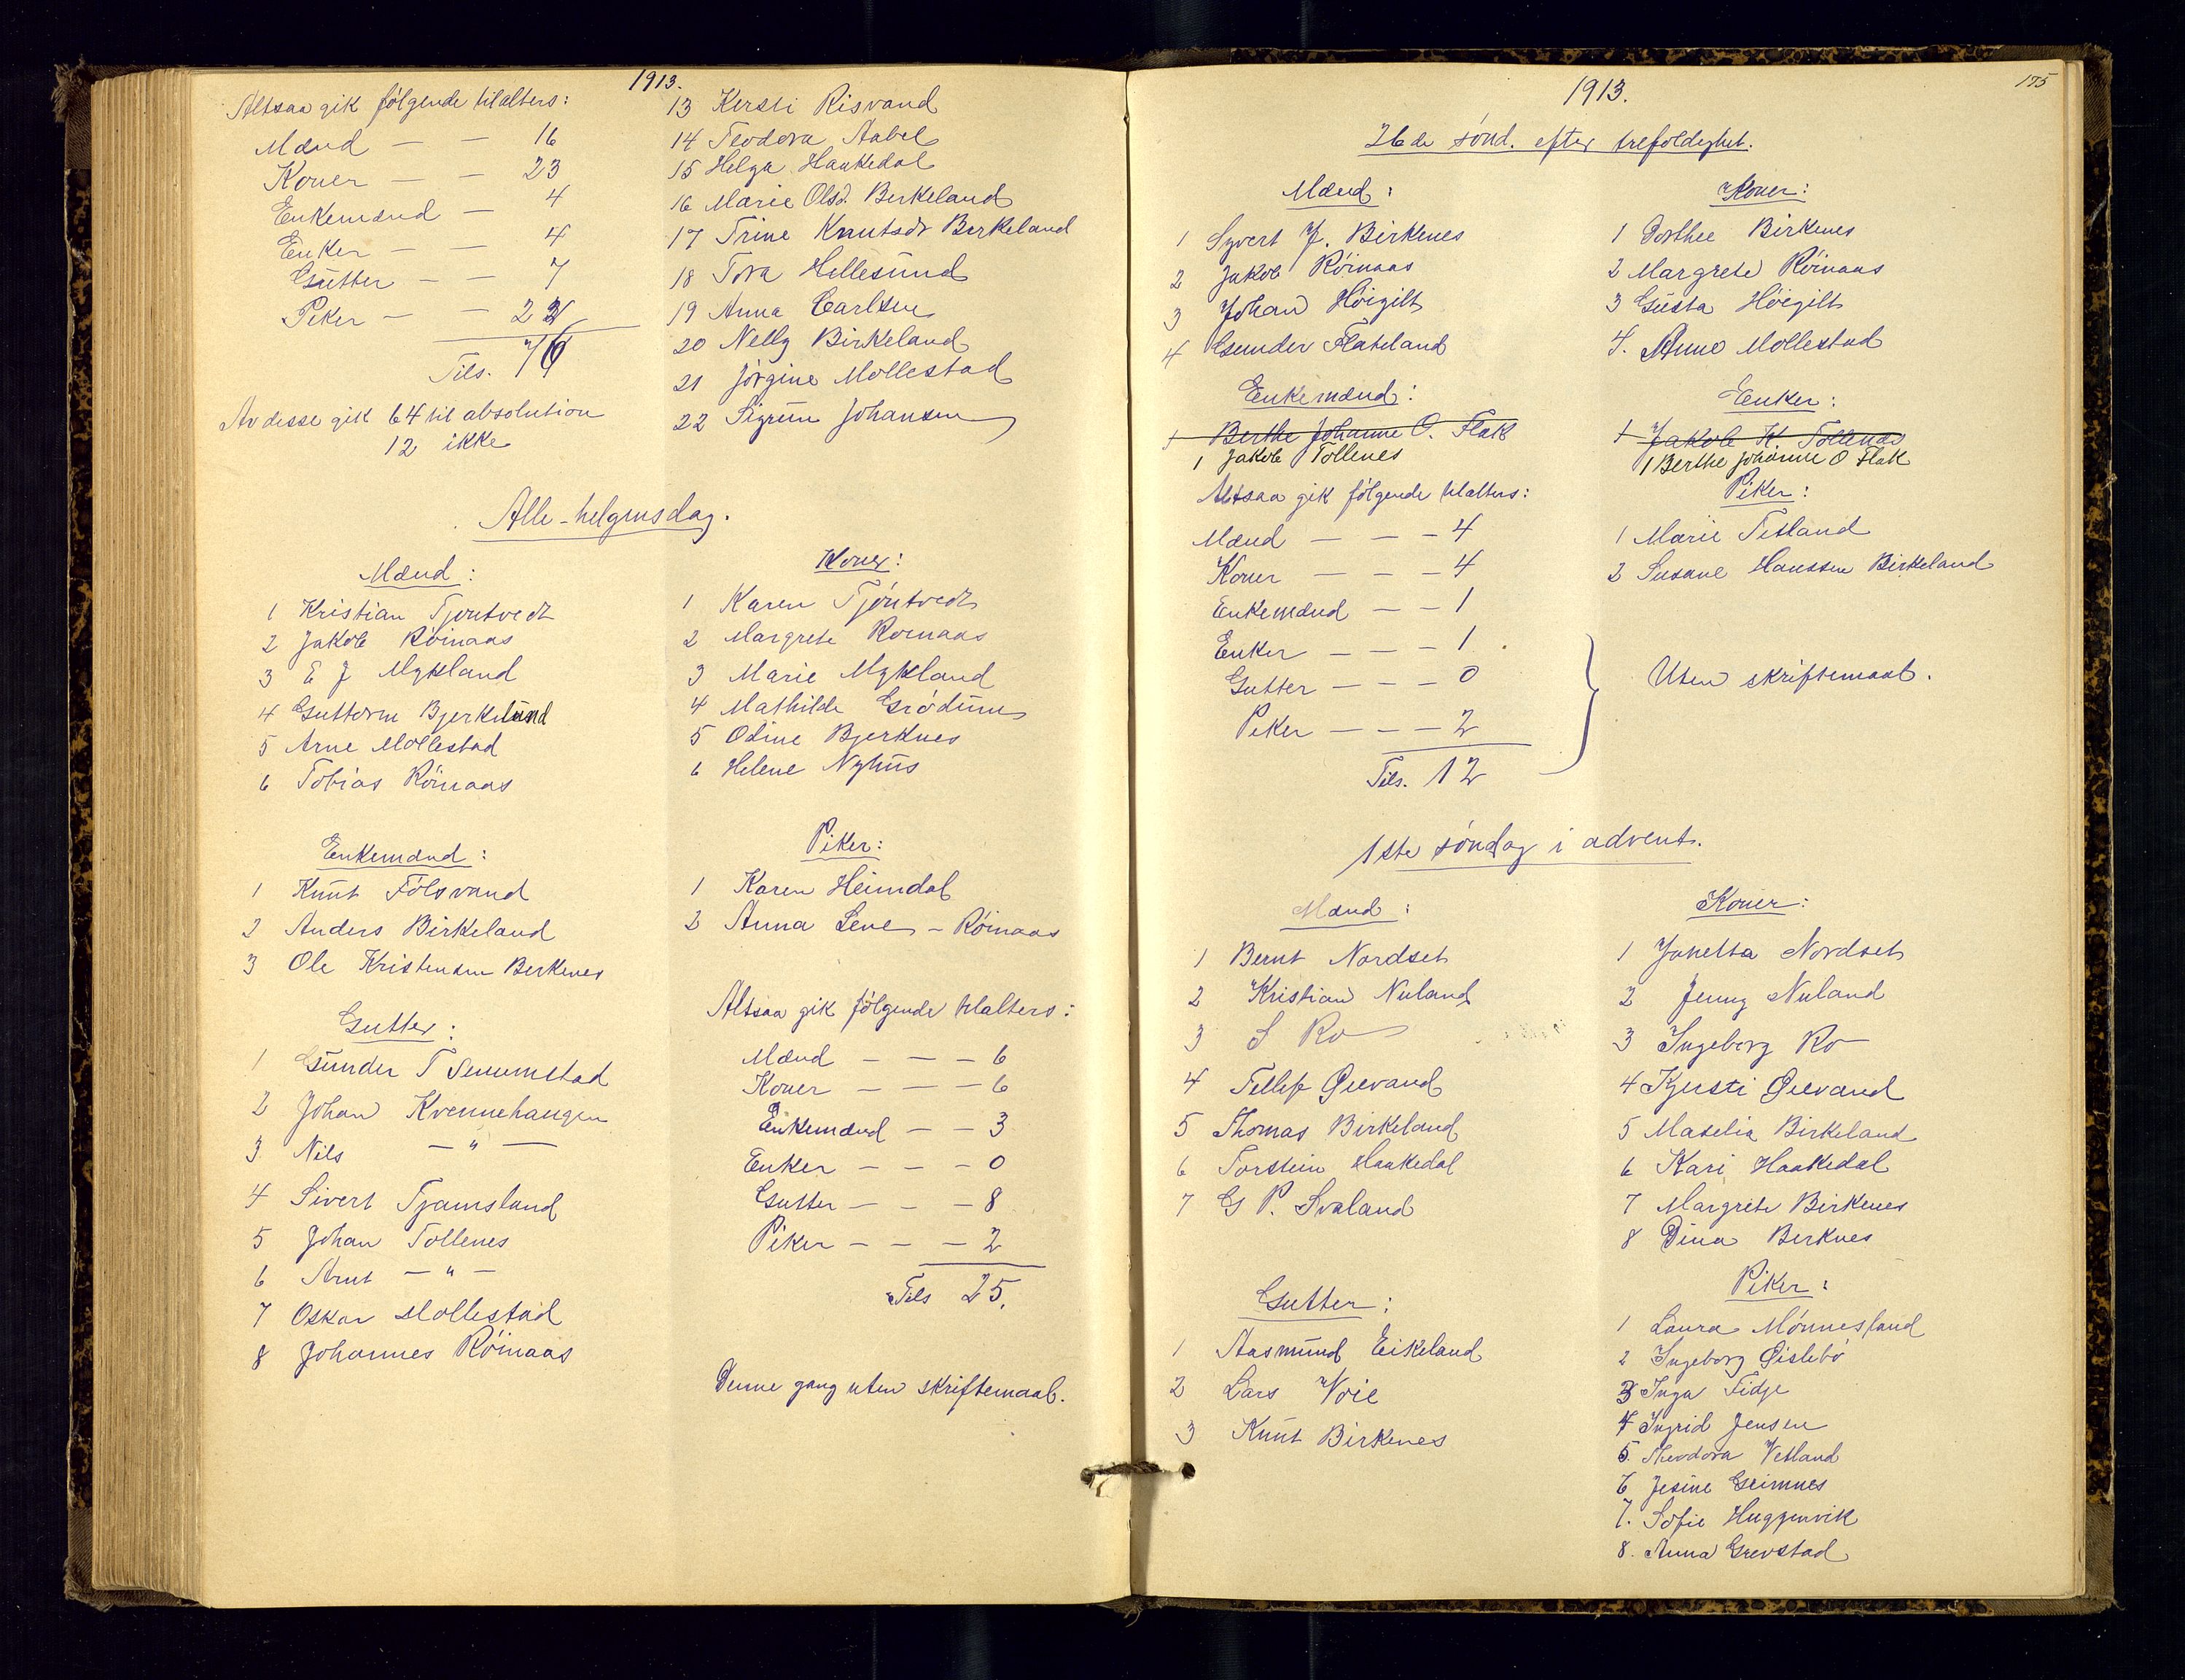 1913.
Altsaa gik følgende tilalters:
Mænd — — 16
Koner — — 23
Enkemænd — 4
Enker — — 4
Gutter — — 7
Piker — — 22
Tils. 76
Av disse gik 64 til absolution
12 ikke
13 Kersti Risvand
14 Teodora Aabel
15 Helga Haakedal
16 Marie Olsd. Birkeland
17 Trine Knutsdr Birkeland
18 Tora Hellesund
19 Anna Carlsen
20 Nelly Birkeland
21 Jørgine Mollestad
22 Sigrun Johansen
Alle-helgensdag.
Mænd:
1 Kristian Tjøntvedt
2 Jakob Röinaas
3 E J Mykland
4 Guttorm Bjerkelund
5 Arne Mollestad
6 Tobias Röinaas
Koner:
1 Karen Tjöntvedt
2 Margrete Roinaas
3 Marie Mykland
4 Mathilde Grödum
5 Odine Bjerknes
6 Helene Nyhus
Enkemænd:
1 Knut Fölsvand
2 Anders Birkeland
3 Ole Kristensen Berkenes
Piker:
1 Karen Heimdal
2 Anna Lene - Röinaas
Gutter:
1 Gunder T Senumstad
2 Johan Kvennehaugen
3 Nils — " —
4 Sivert Tjamsland
5 Johan Tollenes
6 Arnt — " —
7 Oskar Mollestad
8 Johannes Röinaas
Altsaa gik følgende tilalters:
Mænd — — — 6
Koner — — — 6
Enkemænd — — 3
Enker — — — 0
Gutter — — — 8
Piker — — — 2
Tils 25.
Denne gang uten skriftemaal.
175
1913.
26de sönd. efter trefoldighet.
Mænd:
1 Syvert J. Birkenes
2 Jakob Röinaas
3 Johan Höigilt
4 Gunder Flateland
Koner:
1 Dorthee Birkenes
2 Margrete Röinaas
3 Gusta Höigilt
4. Anne Mollestad
Enkemænd:
1 Berthe Johanne O. Flak
1 Jakob Tollenes
Enker:
1 Jakob K. Tollenes
1 Berthe Johanne O Flak
Altsaa gik følgende tilalters:
Mænd — — — 4
Koner — — — 4
Enkemænd — — 1
Enker — — — 1
Gutter — — — 0
Piker — — — 2
Tils. 12
Piker:
1 Marie Tetland
2 Susane Hanssen Birkeland
Uten skriftemaal.
1ste söndag i advent.
Mænd:
1 Bernt Nordset
2 Kristian Nuland
3 S Ro
4 Tellef Øievand
5 Thomas Birkeland
6 Torstein Haakedal
7 G P. Svaland
Koner:
1 Janetta Nordset
2 Jenny Nuland
3 Ingeborg Ro
4 Kjersti Øievand
5 Maselia Birkeland
6 Kari Haakedal
7 Margrete Birkenes
8 Dina Berknes
Gutter:
1 Aasmund Eikeland
2 Lars Voie
3 Knut Birkenes
Piker:
1 Laura Mönnesland
2 Ingeborg Øislebö
3 Inga Fidje
4 Ingrid Jensen
5. Theodora Vetland
6 Jesine Grimnes
7. Sofie Huggenvik
8. Anna Grevstad